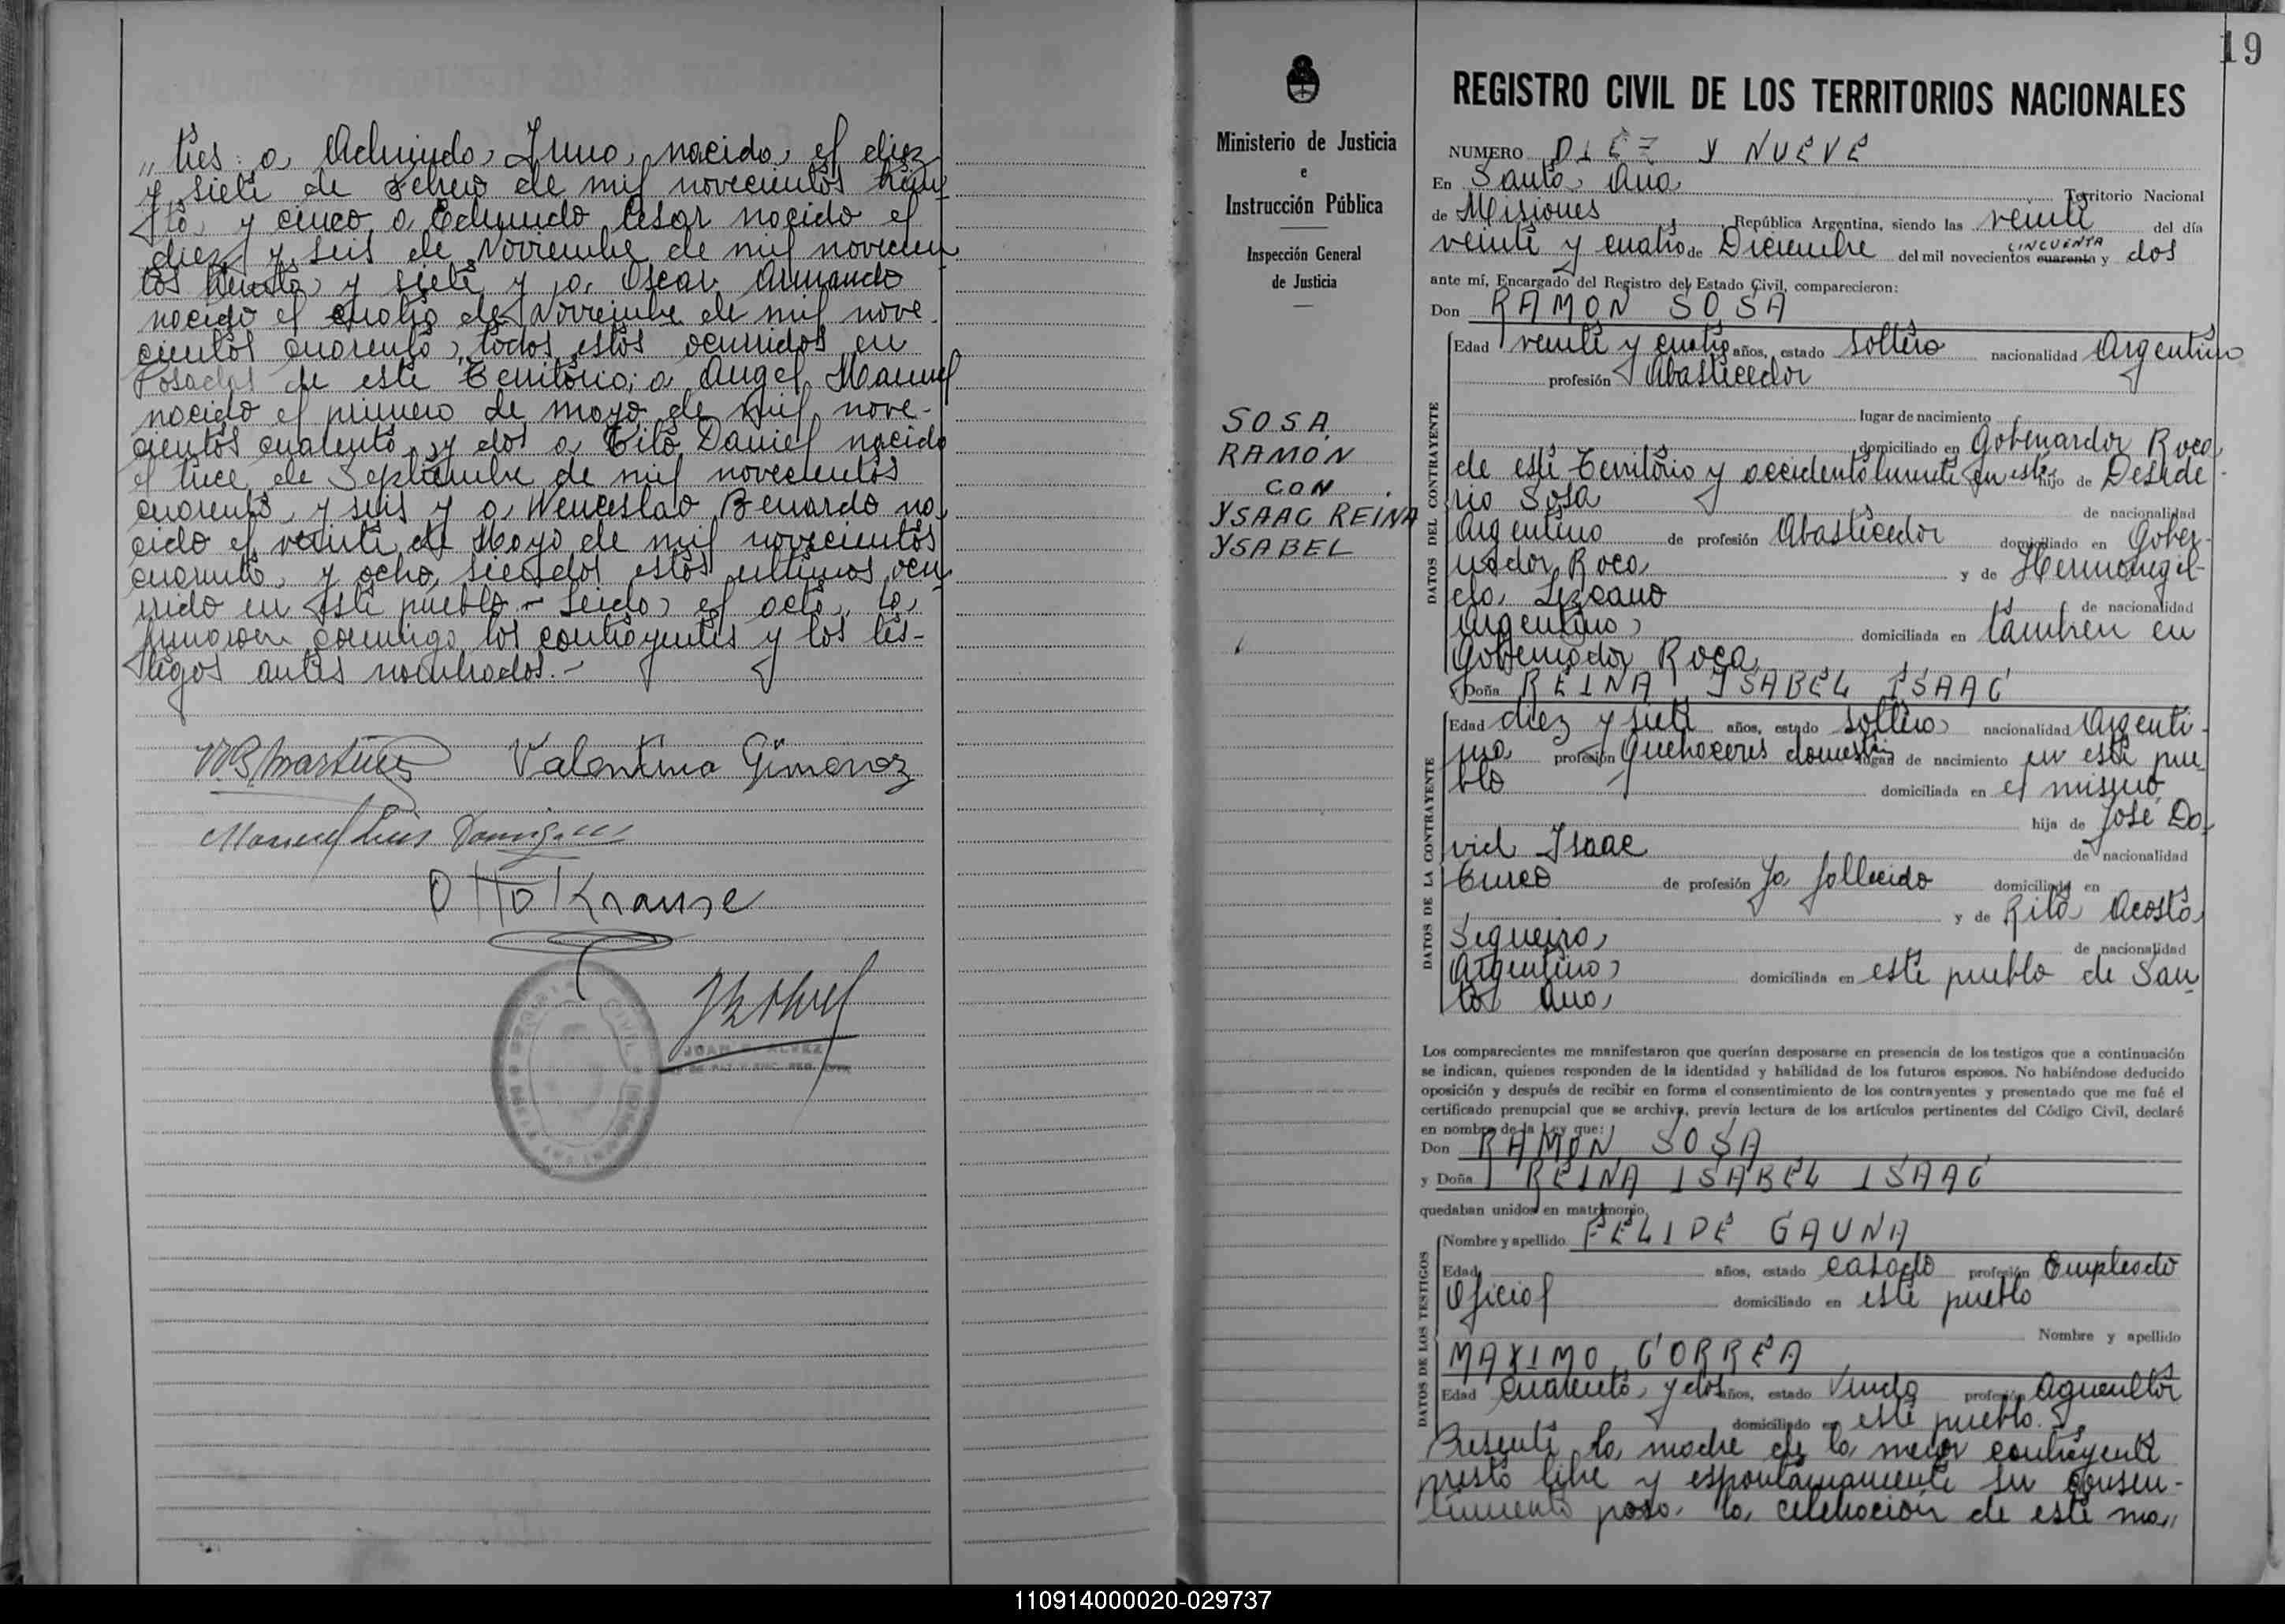 „ ties a Adriendo, Juno, nacido, el diez
y siete de Febrero de mil novecientos trein
ta y cinco, a Edmundo Cesar nacido el
diez y seis de Noviembre de mil novecien
tos treinta y siete y a Oscar Armando
nacido el cuatro de Noviembre de mil nove
cientos cuarenta, todos estos ocurridos en
Posadas de este Territorio; a Angel Manuel
nacido el primero de mayo de mil nove-
cientos cuarenta y dos a Tito Daniel nacido
el trece de Septiembre de mil novecientos
cuarenta y seis y a Wenceslao Bernardo na
cido el veinte de Mayo de mil novecientos
cuarenta y ocho, siendo estos ultimos ocu
rrido en este pueblo - Leida el acta, la
firmaron conmigo los contrayentes y los tes-
tigos antes nombrados.-
Valentina Gimenez
Manuel Luis
Otto Krause
REGISTRO CIVIL
JUAN
19
Ministerio de Justicia
e
Instrucción Pública
Inspección General
de Justicia
SOSA
RAMON
CON
YSAAC REINA
YSABEL
REGISTRO CIVIL DE LOS TERRITORIOS NACIONALES
NUMERO DIEZ Y NUEVE
En Santa Ana Territorio Nacional
de Misiones, República Argentina, siendo las veinte del día
veinte y cuatro de Diciembre del mil novecientos cuarenta CINCUENTA y dos
ante mí, Encargado del Registro del Estado Civil, comparecieron:
Don RAMON SOSA
DATOS DEL CONTRAYENTE
Edad veinte y cuatro años, estado soltero nacionalidad Argentino
profesión Abastecedor
lugar de nacimiento
domiciliado en Gobernardor Roca
de este Territorio y accidentalmente en este hijo de Deside
rio Sosa de nacionalidad
Argentino de profesión Abastecedor domiciliado en Gober-
nador Roca y de Hermenegil-
da Lezcano de nacionalidad
Argentina domiciliada en tambien en
Gobernador Roca
Doña REINA ISABEL ISAAC
DATOS DE LA CONTRAYENTE
Edad diez y siete años, estado soltera nacionalidad Argenti-
na profesión Quehaceres domesti lugar de nacimiento en este pue
blo domiciliada en el mismo
hija de José Da-
vid Isaac de nacionalidad
turco de profesión ya fallecido domiciliado en
y de Rita Acosta
Sequeira de nacionalidad
Argentina domiciliada en este pueblo de San
ta Ana
Los comparecientes me manifestaron que querían desposarse en presencia de los testigos que a continuación
se indican, quienes responden de la identidad y habilidad de los futuros esposos. No habiéndose deducido
oposición y después de recibir en forma el consentimiento de los contrayentes y presentado que me fué el
certificado prenupcial que se archiva, previa lectura de los artículos pertinentes del Código Civil, declaré
en nombre de la Ley que:
Don RAMON SOSA
y Doña REINA ISABEL ISAAC
quedaban unidos en matrimonio.
DATOS DE LOS TESTIGOS
Nombre y apellido FELIDE GAUNA
Edad años, estado casado profesión Empleado
Oficial domiciliado en este pueblo
Nombre y apellido
MAXIMO CORREA
Edad cuarenta y dos años, estado viudo profesión Agricultor
domiciliado en este pueblo.
Presente la madre de la menor contrayente
presta libre y espontáneamente su consen-
timiento para la celebración de este ma„
110914000020-029737